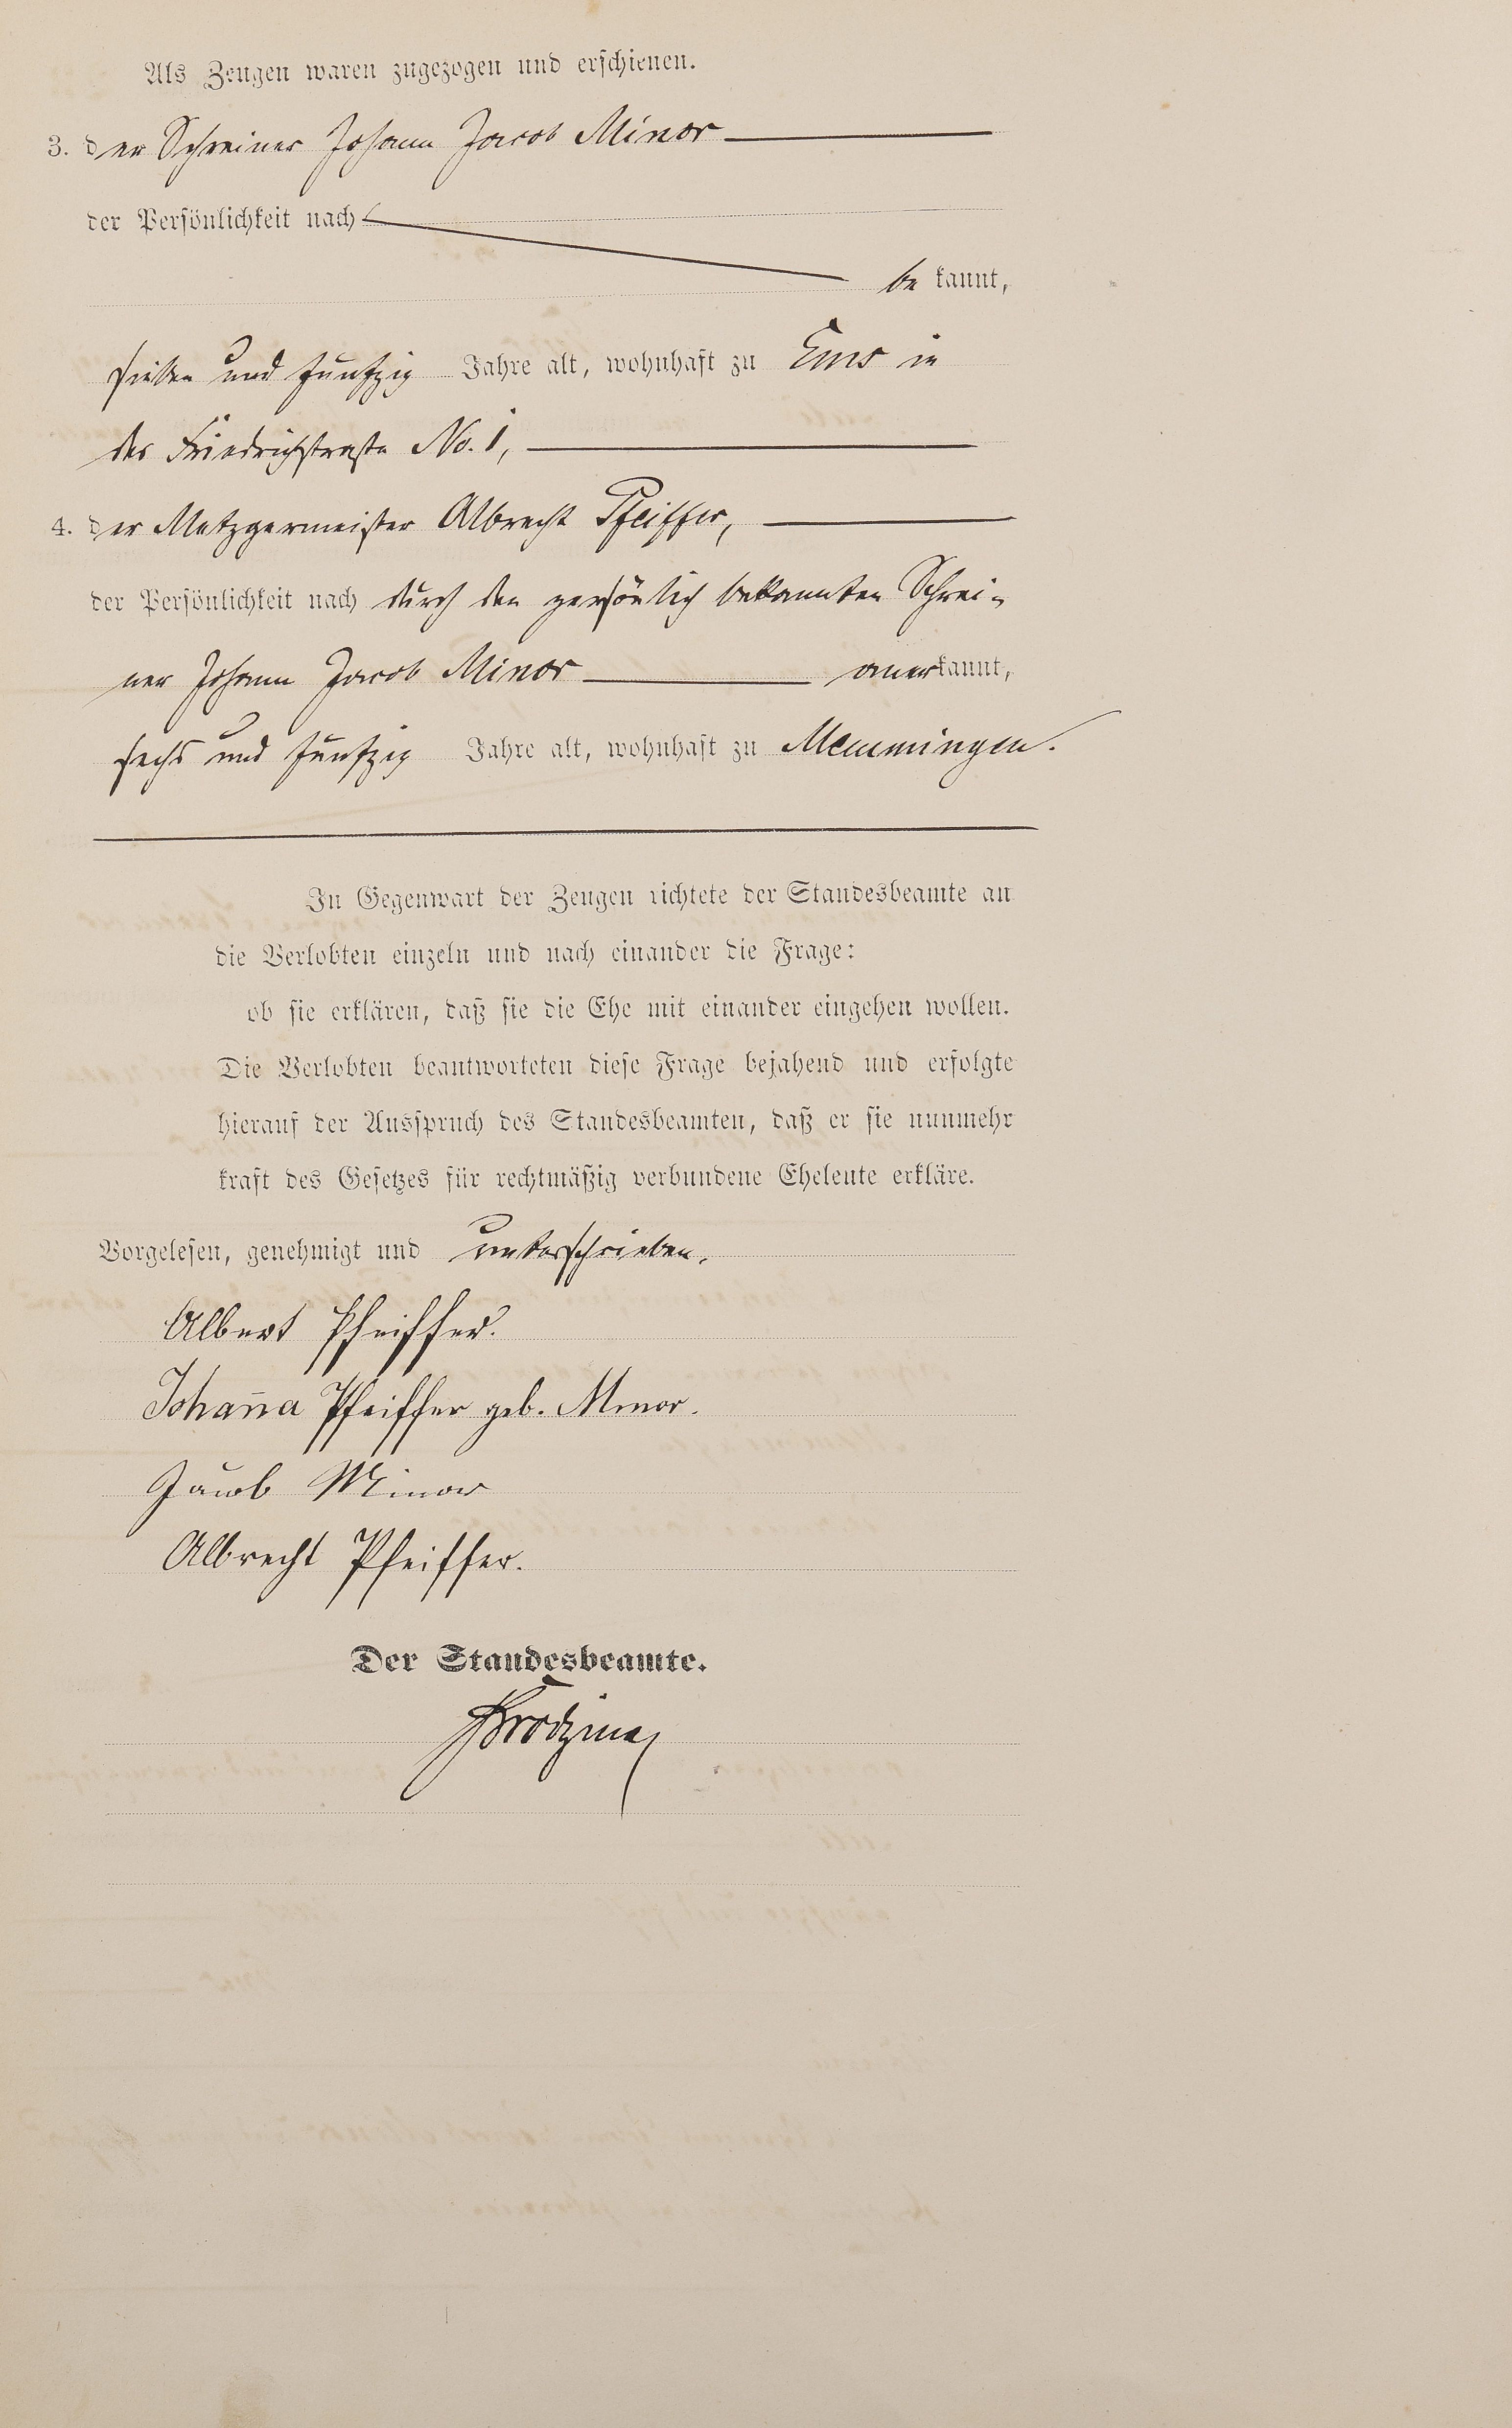 Als Zeugen waren zugezogen und erschienen.
3. der Schreiner Johann Jacob Minor
der Persönlichkeit nach
be kannt,
sieben und fünfzig Jahre alt, wohnhaft zu Ems in
der Friedrichstraße No. 1,
4. der Metzgermeister Albrecht Pfeiffer,
der Persönlichkeit nach durch den persönlich bekannten Schrei-
ner Johann Jacob Minor anerkannt,
sechs und fünfzig Jahre alt, wohnhaft zu Memmingen.
In Gegenwart der Zeugen richtete der Standesbeamte an
die Verlobten einzeln und nach einander die Frage:
ob sie erklären, daß sie die Ehe mit einander eingehen wollen.
Die Verlobten beantworteten diese Frage bejahend und erfolgte
hierauf der Ausspruch des Standesbeamten, daß er sie nunmehr
kraft des Gesetzes für rechtmäßig verbundene Eheleute erkläre.
Vorgelesen, genehmigt und unterschrieben.
Albert Pfeiffer.
Johanna Pfeiffer geb. Minor.
Jacob Minor
Albrecht Pfeiffer.
Der Standesbeamte.